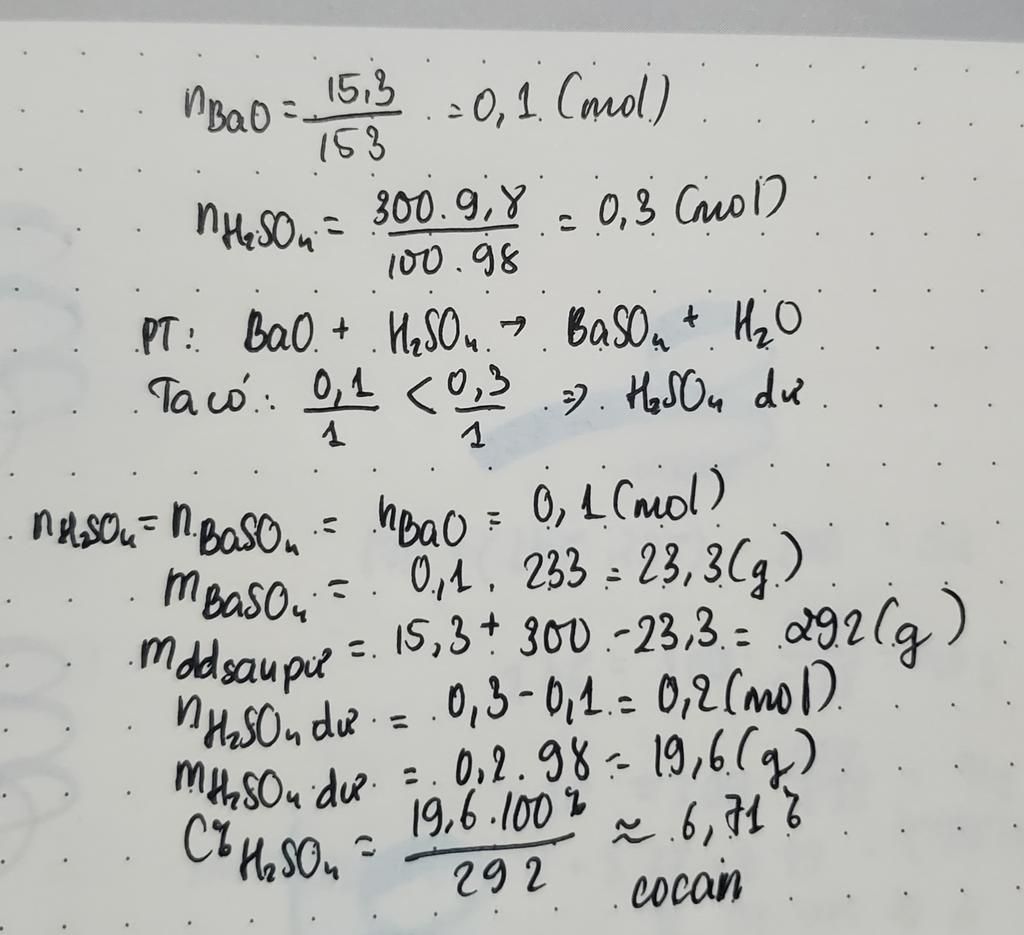 nBaO = 15,3/153 = 0,1 (mol)
nH₂SO₄ = 300.9,8/100.98 = 0,3 (mol)
PT: BaO + H₂SO₄ → BaSO₄ + H₂O
Ta có: 0,1/1 < 0,3/1 => H₂SO₄ dư
nH₂SO₄ = nBaSO₄ = nBaO = 0,1 (mol)
mBaSO₄ = 0,1 . 233 = 23,3 (g)
mddsaupư = 15,3 + 300 - 23,3 = 292 (g)
nH₂SO₄ dư = 0,3 - 0,1 = 0,2 (mol)
mH₂SO₄ dư = 0,2 . 98 = 19,6 (g)
C%H₂SO₄ = 19,6.100%/292 ≈ 6,71%
cocain